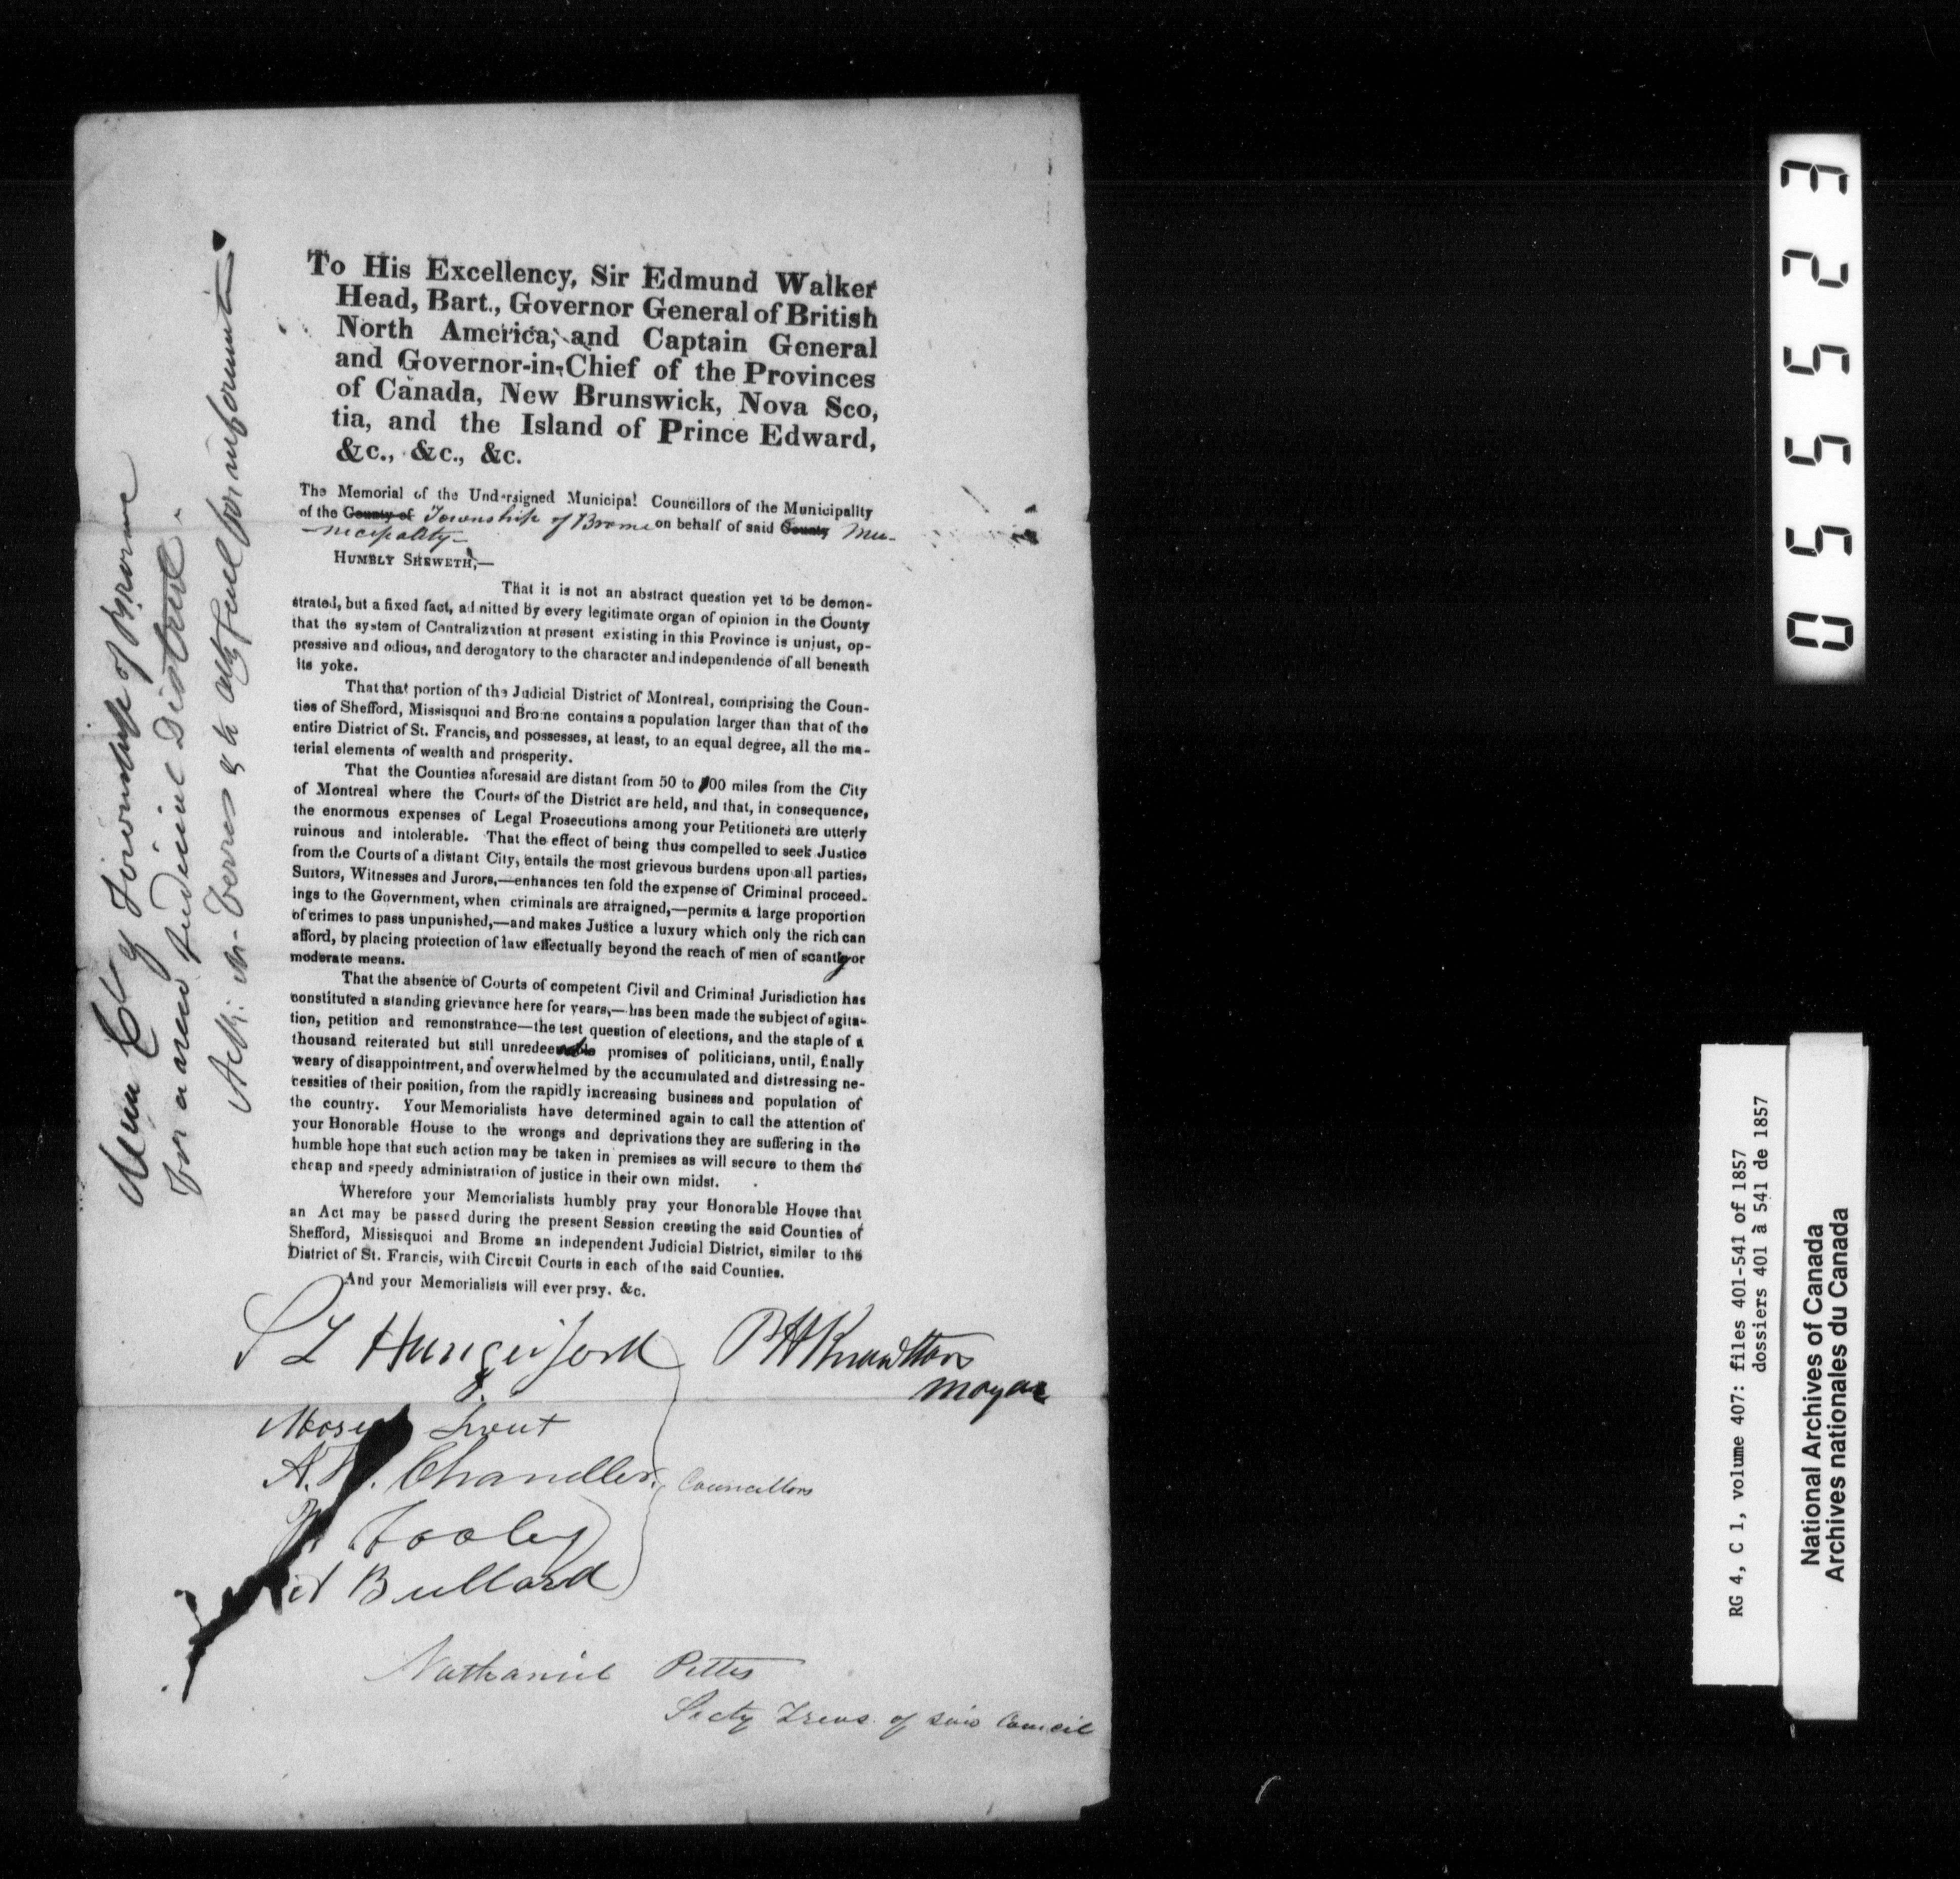 To His Excellency, Sir Edmund Walker
Head, Bart., Governor General of British
North America, and Captain General
and Governor-in-Chief of the Provinces
of Canada, New Brunswick, Nova Sco,
tia, and the Island of Prince Edward,
&c., &c., &c.
The Memorial of the Undersigned Municipal Councillors of the Municipality
of the County of Township of Brome on behalf of said County Mu-
nicipality-
HUMBLY SHEWETH,—
That it is not an abstract question yet to be demon-
strated, but a fixed fact, admitted by every legitimate organ of opinion in the County
that the system of Centralization at present existing in this Province is unjust, op-
pressive and odious, and derogatory to the character and independence of all beneath
its yoke.
That that portion of the Judicial District of Montreal, comprising the Coun-
ties of Shefford, Missisquoi and Brome contains a population larger than that of the
entire District of St. Francis, and possesses, at least, to an equal degree, all the ma-
terial elements of wealth and prosperity.
That the Counties aforesaid are distant from 50 to 100 miles from the City
of Montreal where the Courts of the District are held, and that, in consequence,
the enormous expenses of Legal Prosecutions among your Petitioners are utterly
ruinous and intolerable. That the effect of being thus compelled to seek Justice
from the Courts of a distant City, entails the most grievous burdens upon all parties,
Suitors, Witnesses and Jurors,—enhances ten fold the expense of Criminal proceed-
ings to the Government, when criminals are arraigned,—permits a large proportion
of crimes to pass unpunished,—and makes Justice a luxury which only the rich can
afford, by placing protection of law effectually beyond the reach of men of scanty or
moderate means.
That the absence of Courts of competent Civil and Criminal Jurisdiction has
constituted a standing grievance here for years,—has been made the subject of agita-
tion, petition and remonstrance—the test question of elections, and the staple of a
thousand reiterated but still promises of politicians, until, finally
weary of disappointment, and overwhelmed by the accumulated and distressing ne-
cessities of their position, from the rapidly increasing business and population of
the country. Your Memorialists have determined again to call the attention of
your Honorable House to the wrongs and deprivations they are suffering in the
humble hope that such action may be taken in premises as will secure to them the
cheap and speedy administration of justice in their own midst.
Wherefore your Memorialists humbly pray your Honorable House that
an Act may be passed during the present Session creating the said Counties of
Shefford, Missisquoi and Brome an independent Judicial District, similar to the
District of St. Francis, with Circuit Courts in each of the said Counties.
And your Memorialists will ever pray. &c.
S L Hungerford P H Knowlton
Mayor
Moses
A. Chandler Councillors
Bullard
Nathaniel Pettes
Secty Treas. of said Council
Mun Cl of Township of Brome
For a new Judicial District.
0 5 5 5 2 3
RG 4, C 1, volume 407: files 401-541 of 1857
dossiers 401 à 541 de 1857
National Archives of Canada
Archives nationales du Canada